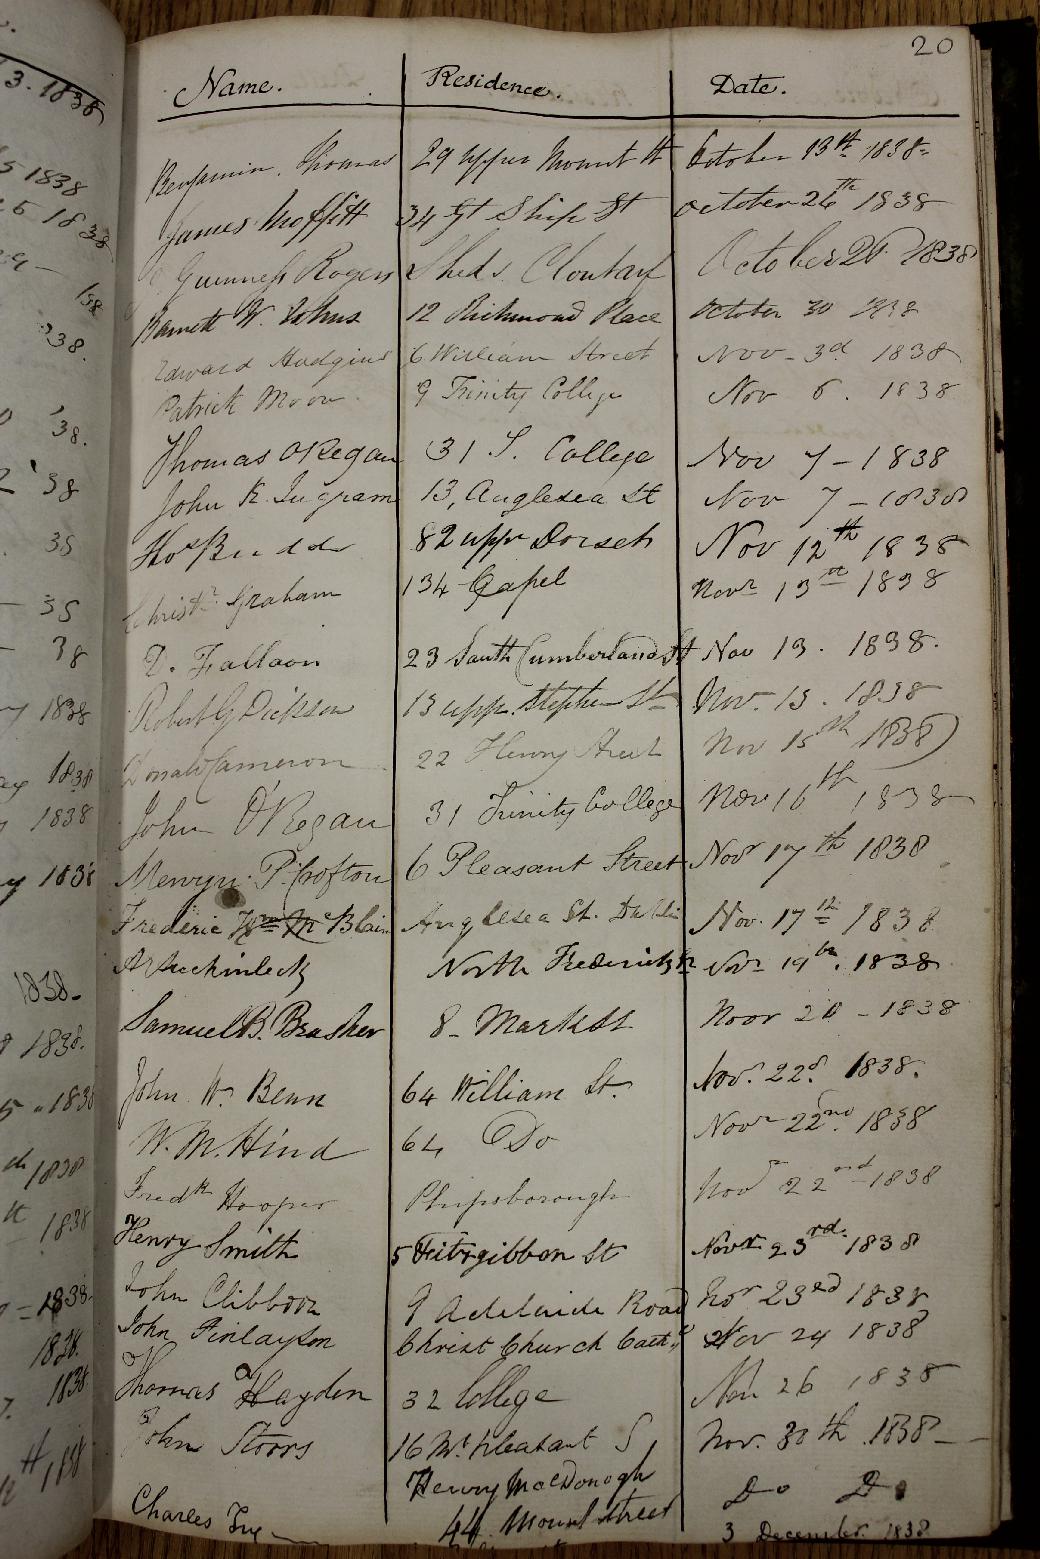 20
Name. Residence. Date.
Benjamin Thomas 29 Upper Mount St October 13th 1838
James Moffitt 34 Gt Ship St October 26th 1838
Guinness Rogers Sheds Clontarf October 26 1838
Barnett W. Johns 12 Richmond Place October 30 1838
Edward Hudgins 6 William Street Nov. 3d 1838
Patrick Moon 9 Trinity College Nov 6. 1838
Thomas O'Regan 31 T. College Nov 7 - 1838
John K. Ingram 13, Anglesea St Nov 7 - 1838
Thos Budd 82 uppr Dorset Nov 12th 1838
Christr Graham 134 Capel Novr 13th 1838
D. Falloon 23 South Cumberland St Nov 13. 1838.
Robert G Dickson 13 upp. Stephen St Nov. 13. 1838
Donald Cameron 22 Henry Street Nov 15th 1838
John O'Regan 31 Trinity College Nov 16th 1838
Mervyn P. Crofton 6 Pleasant Street Novr 17th 1838
Frederic Wm McBlain Anglesea St. Dublin Nov. 17th 1838
A Auchinleck North Frederick Novr 19th. 1838
Samuel B. Brasher 8 - Mark St Novr 20 - 1838
John W. Benn 64 William St. Nov. 22d. 1838.
W. M. Hind 64 Do Novr 22nd. 1838
Fredk Hooper Phipsborough Nov 22nd - 1838
Henry Smith 5 Fitzgibbon St Novr 23rd. 1838
John Clibborn 9 Adelaide Road Nov 23rd 1838
John Finlayson Christ Church Cath. Nov 24 1838
Thomas Hayden 32 College Nov 26 1838
John Storrs 16 Mt pleasant S Nov. 30th 1838
Henry MacDonogh Do Do
Charles 44 Mount Street 3 December 1838